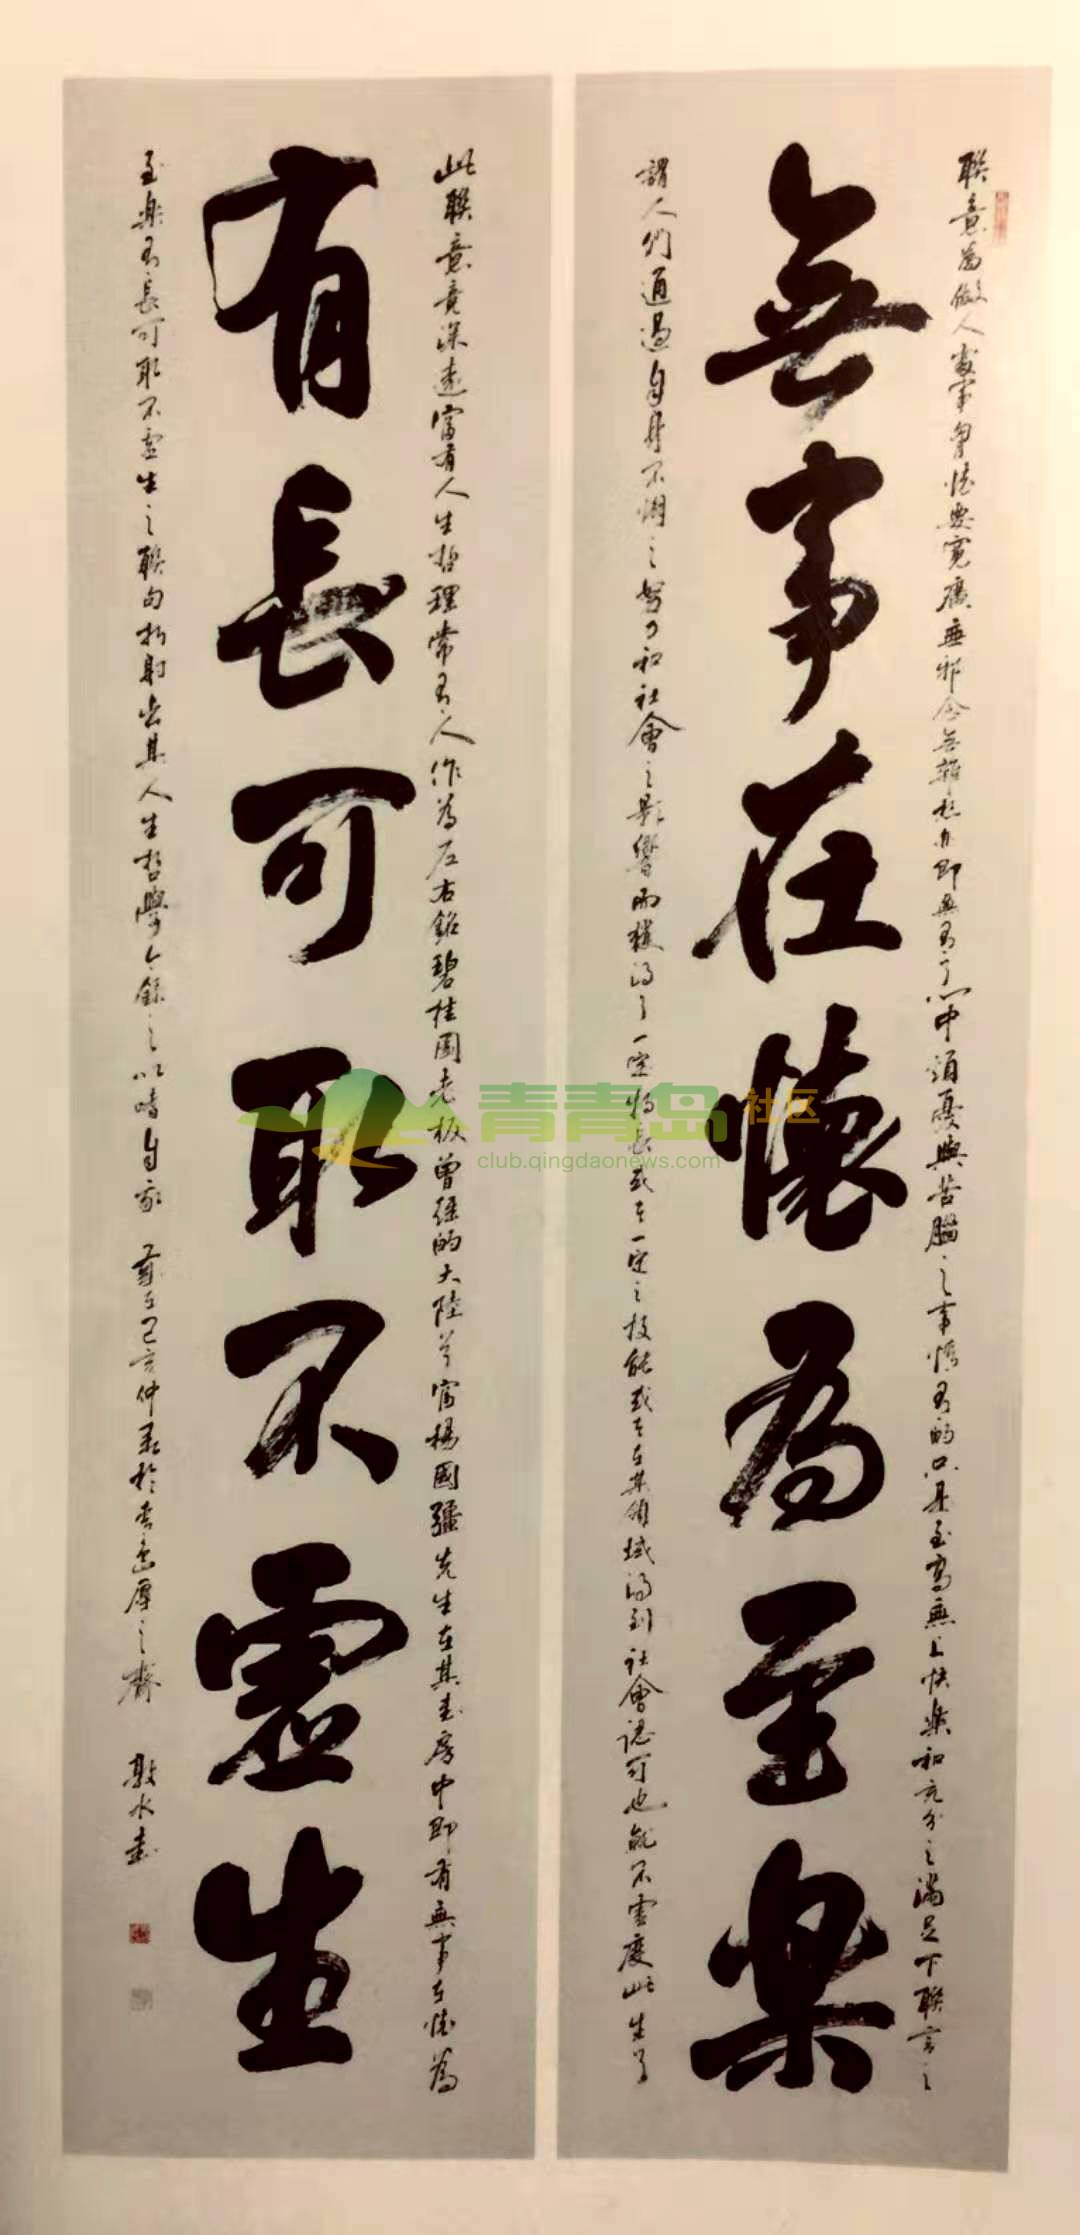 聯意為做人處事胸懷要寬廣無邪念無雜亦即無有于心中煩憂與苦腦之事情有的只是至高無上快樂和充分之滿足下聯言之
無事在懷為至樂
謂人們通過自身不懈之努力和社會之影響而獲得了一定特長或在一定之技能或在其領域得到社會認可也就不虛度此生了
此聯意竟深遠富有人生哲理常有人作為左右銘碧桂園老板曾經的大陸首富楊國強先生在其書房中即有無事在懷為
有長可取不虛生
至樂有長可取不虛生之聯句折射出其人生哲學今錄之以自家 歲在己亥仲夏於青島厚之齋 水書
青青岛社区
club.qingdaonews.com